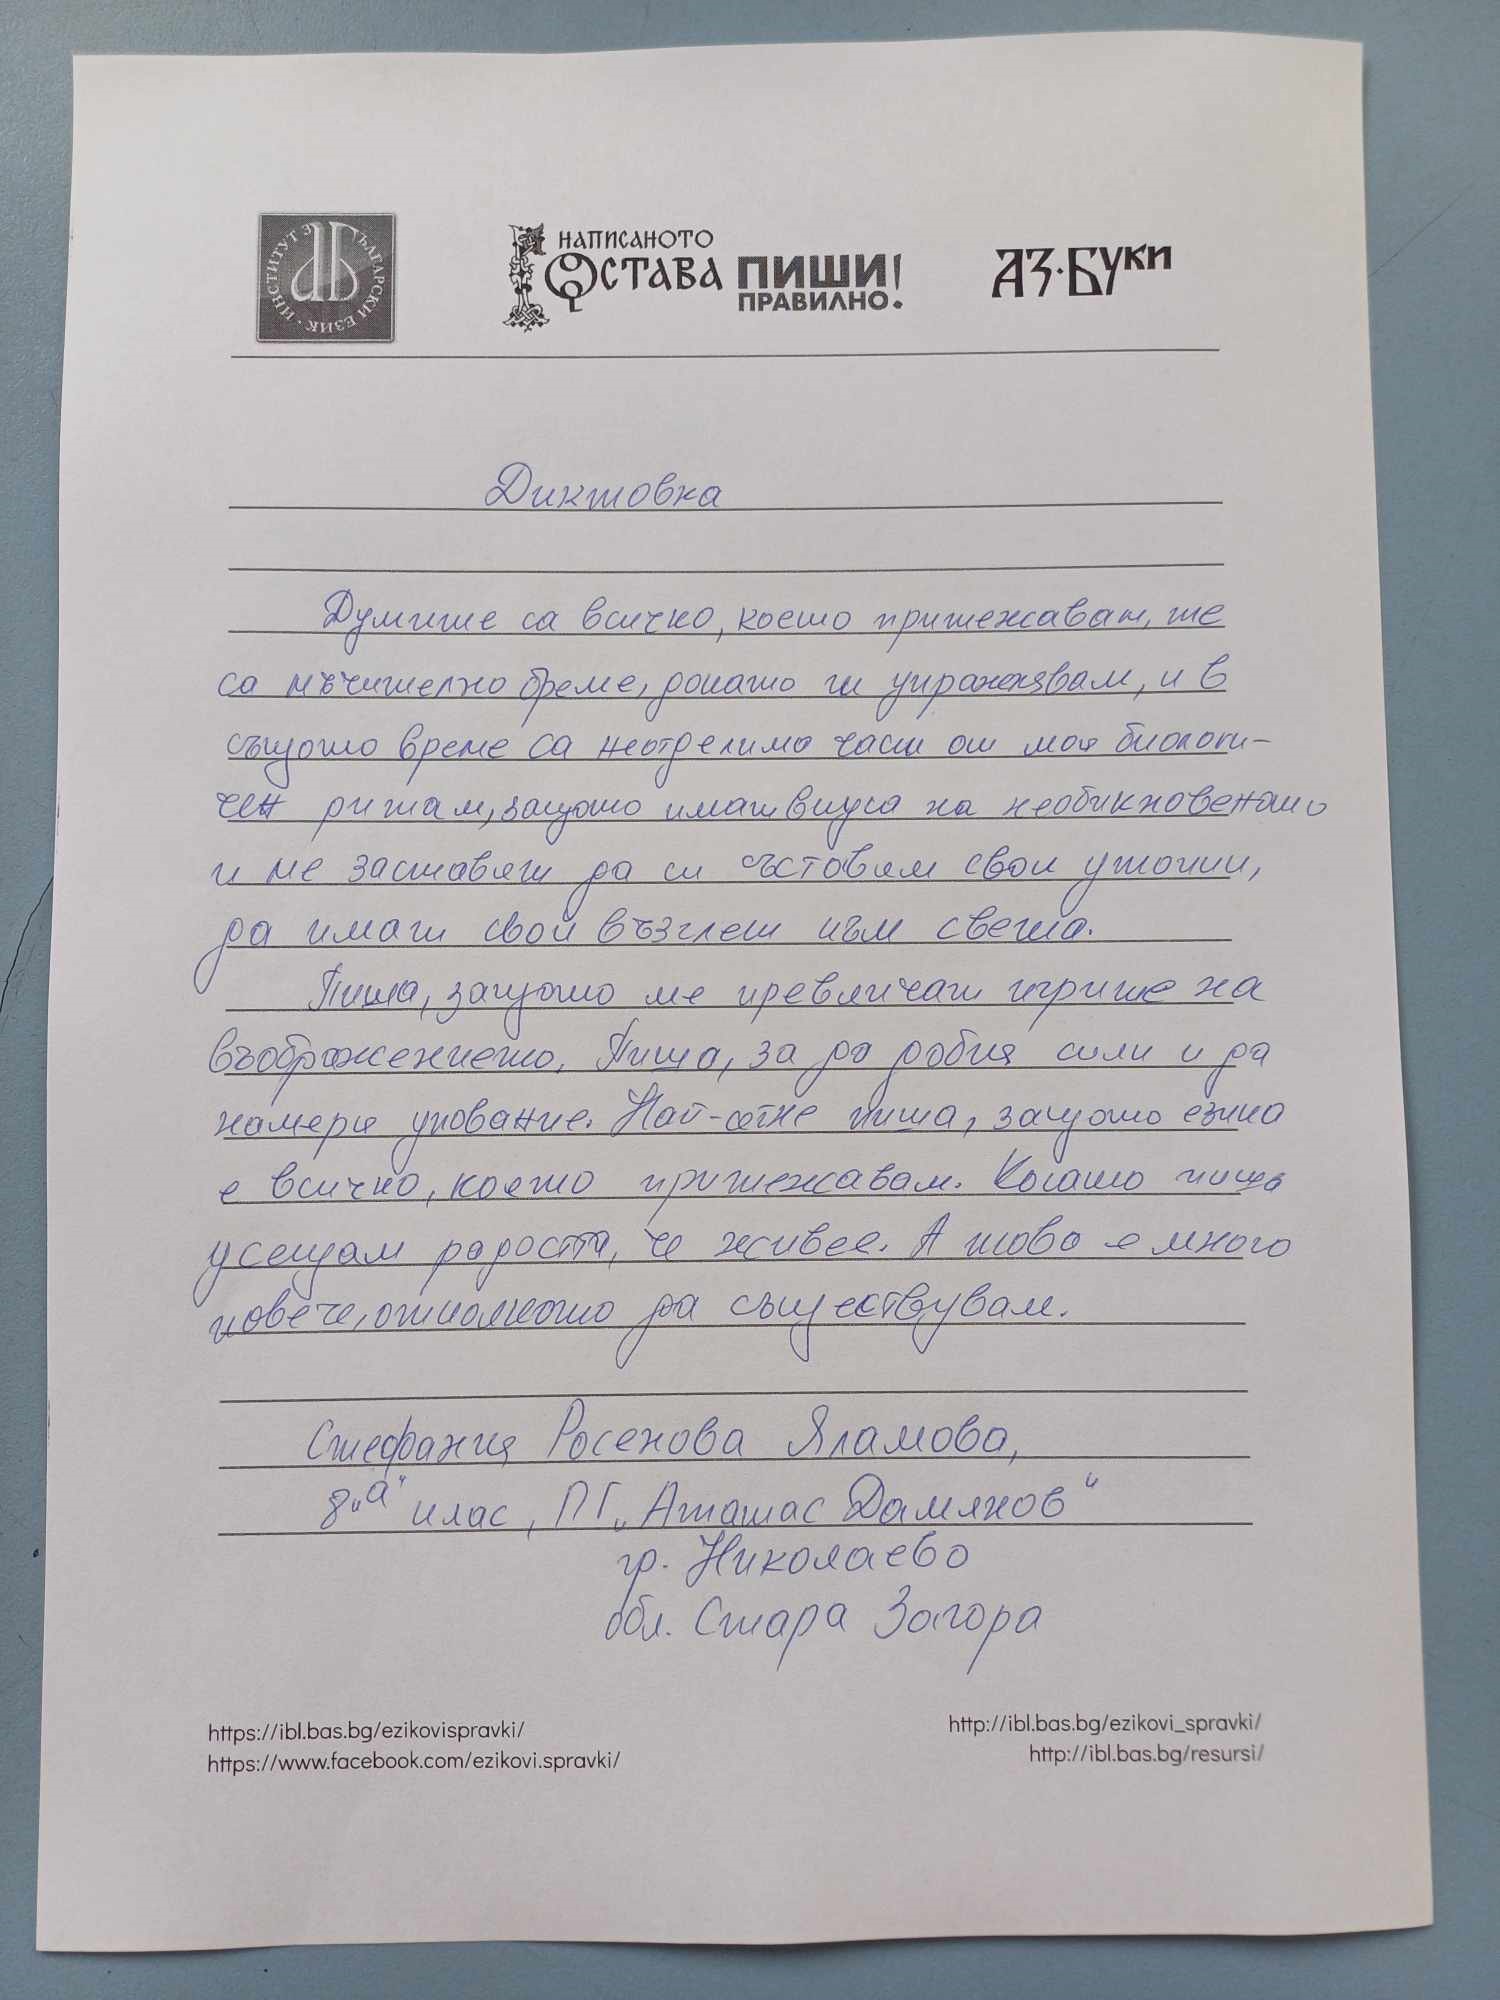 ИНСТИТУТ ЗА БЪЛГАРСКИ ЕЗИК
НАПИСАНОТО
ОСТАВА ПИШИ
ПРАВИЛНО!
АЗ·БУКИ
Диктовка
Думите са всичко, което притежавам, те
са мъчително бреме, докато ги упражнявам, и в
същото време са неотделима част от моя биологи-
чен ритам, защото имат вкуса на необикновенато
и ме заставят да си съставям свои утопии,
да имам свой възглет към света.
Пиша, защото ме превличат игрите на
въображението. Пиша, за да добия сили и да
намеря упование. Най-сетне пиша, защото езика
е всичко, което притежавам. Когато пиша
усещам радостта, че живея. А това е много
повече, отколкото да съществувам.
Стефания Росенова Яламова,
8„а“ клас, ПГ„Атанас Дамянов“
гр. Николаево
обл. Стара Загора
https://ibl.bas.bg/ezikovispravki/
https://www.facebook.com/ezikovi.spravki/
http://ibl.bas.bg/ezikovi_spravki/
http://ibl.bas.bg/resursi/